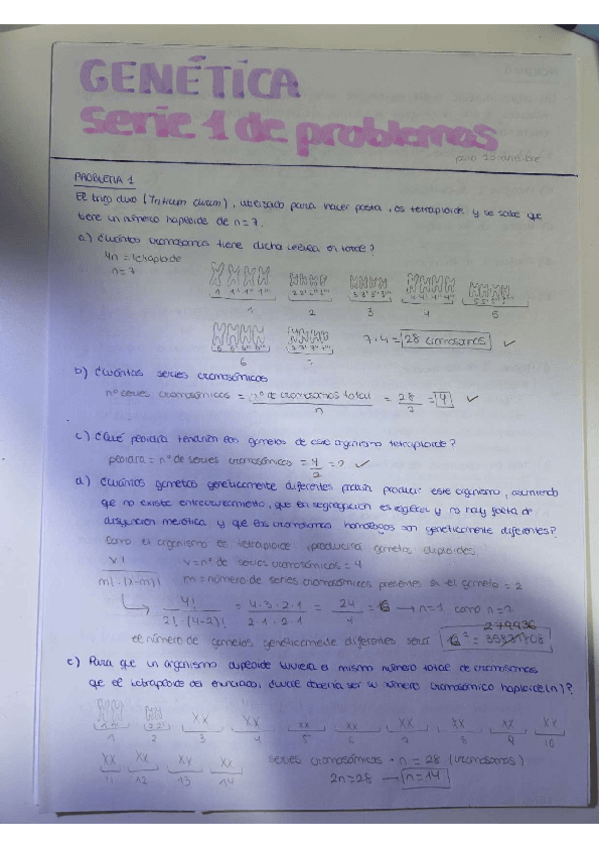 GENÉTICA
Serie 1 de problemas
PROBLEMA 1
El trigo duro (Triticum durum), utilizado para hacer pasta, es tetraploide y se sabe que
tiene un número haploide de n=7.
a) ¿Cuántos cromosomas tiene dicha en total?
4n = tetraploide
n=7
1 2 3 4 5
6
7·4 = 28 cromosomas ✓
b) ¿Cuántas series cromosómicas
nº series cromosómicas = nº de cromosomas total / n = 28 / = 4 ✓
c) ¿Qué ploidía tendrían los gametos de este organismo tetraploide?
ploidía = nº de series cromosómicas = 4/2 = 2 ✓
d) ¿Cuántos gametos genéticamente diferentes podría producir este organismo, asumiendo
que no existe entrecruzamiento, que la segregación es regular y no hay
disyunción meiótica y que los cromosomas homólogos son genéticamente diferentes?
Como el organismo es tetraploide, producirá gametos diploides.
v! / m!·(v-m)! v = nº de series cromosómicas = 4
m = número de series cromosómicas presentes en el gameto = 2
4! / 2!·(4-2)! = 4·3·2·1 / 2·1·2·1 = 24 / = 6 → n=1, como n=7
279936
el número de gametos genéticamente diferentes será 6⁷ =
e) Para que un organismo diploide tuviera el mismo número total de cromosomas
que el tetraploide del enunciado, ¿cuál debería ser su número cromosómico haploide (n)?
XX XX XX XX XX XX XX XX
1 2 3 4 5 6 7 8 9 10
XX XX XX XX series cromosómicas · n = 28 (cromosomas)
11 12 13 14 2n=28 → n=14